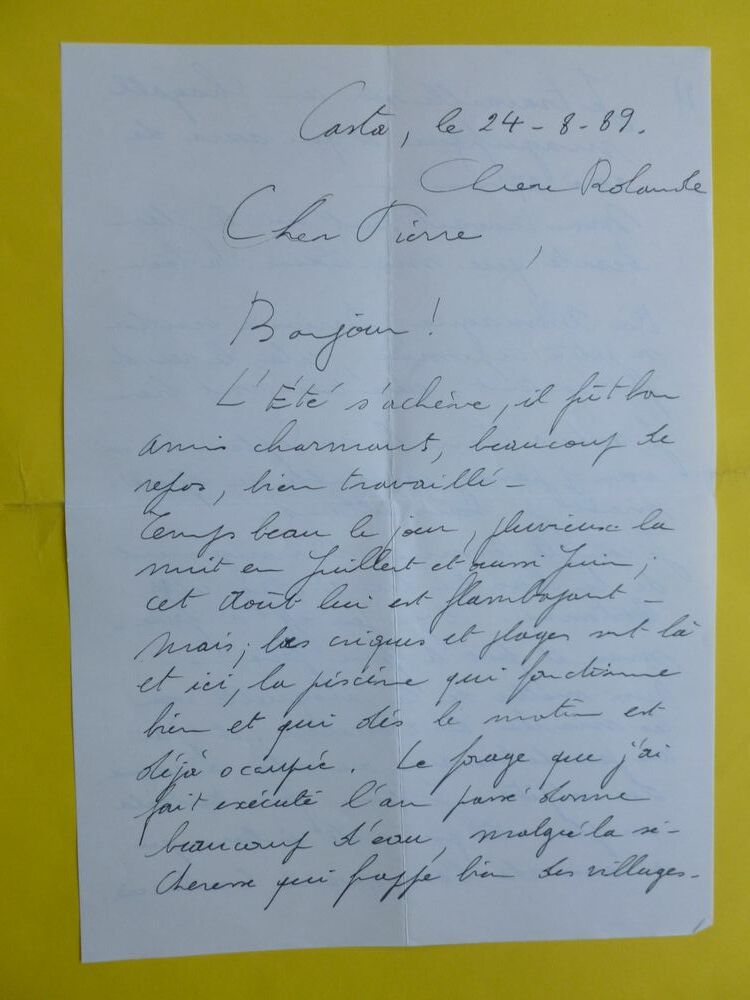 Casta, le 24-8-89.
Chere Rolande
Cher Pierre,
Bonjour!
L'Été s'achève, il fût bon
amis charmants, beaucoup de
repos, bien travaillé -
Temps beau le jour, pluvieux la
nuit en Juillet et aussi Juin;
cet Août lui est flamboyant -
Mais; les criques et plages sont là
et ici, la piscine qui fonctionne
bien et qui dès le matin est
déjà occupée. Le forage que j'ai
fait exécuté l'an passé donne
beaucoup d'eau, malgré la sé-
cheresse qui frappe bien des villages.